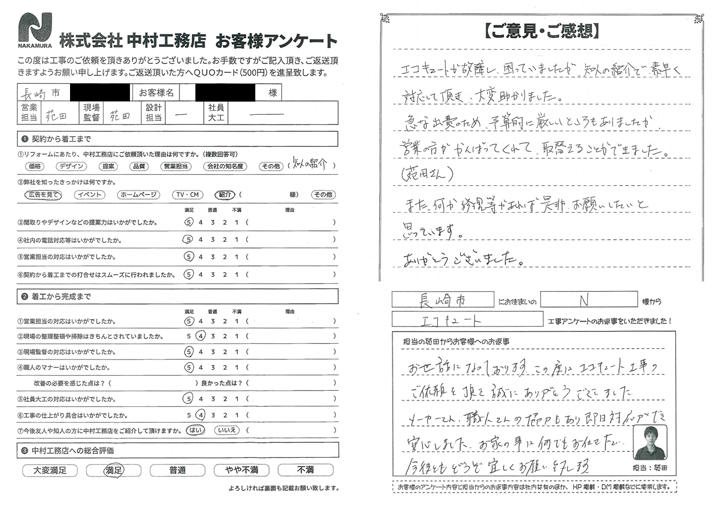 NAKAMURA
株式会社 中村工務店 お客様アンケート
この度は工事のご依頼を頂きありがとうございました。お手数ですがご記入頂き、ご返送頂
きますようお願い申し上げます。ご返送頂いた方へQUOカード(500円)を進呈致します。
長崎 市 お客様名 様
営業担当 苑田 現場監督 苑田 設計担当 — 社員大工 —
❶ 契約から着工まで
①リフォームにあたり、中村工務店にご依頼頂いた理由は何ですか。(複数回答可)
価格 デザイン 提案 品質 営業担当 会社の知名度 その他 (知人の紹介)
②弊社を知ったきっかけは何ですか。
広告を見て イベント ホームページ TV・CM 紹介 ( 様) その他
満足 普通 不満 理由
③間取りやデザインなどの提案力はいかがでしたか。 5 4 3 2 1 ( )
④社内の電話対応等はいかがでしたか。 5 4 3 2 1 ( )
⑤営業担当の対応はいかがでしたか。 5 4 3 2 1 ( )
⑥契約から着工までの打合せはスムーズに行われましたか。 5 4 3 2 1 ( )
❷ 着工から完成まで
満足 普通 不満 理由
①営業担当の対応はいかがでしたか。 5 4 3 2 1 ( )
②現場の整理整頓や掃除はきちんとされていましたか。 5 4 3 2 1 ( )
③現場監督の対応はいかがでしたか。 5 4 3 2 1 ( )
④職人のマナーはいかがでしたか。 5 4 3 2 1 ( )
改善の必要を感じた点は?( )良かった点は?( )
⑤社員大工の対応はいかがでしたか。 5 4 3 2 1 ( )
⑥工事の仕上がり具合はいかがでしたか。 5 4 3 2 1 ( )
⑦今後友人や知人の方に中村工務店をご紹介して頂けますか。 はい いいえ ( )
❸ 中村工務店への総合評価
大変満足 満足 普通 やや不満 不満
よろしければ裏面も記載お願い致します。
【ご意見・ご感想】
エコキュートが故障し、困っていましたが 知人の紹介で素早く
対応して頂き、大変助かりました。
急な出費のため、予算的に厳しいところもありましたが、
営業の方ががんばってくれて、取替えることができました。
(苑田さん)
また、何か修理等があれば是非、お願いしたいと
思っています。
ありがとうございました。
長崎市 にお住まいの N 様から
エコキュート 工事アンケートのお返事をいただきました!
担当の苑田からお客様へのお返事
お世話になっております この度は エコキュート工事の
ご依頼を頂き誠にありがとうございました
メーカーさん、職人さんの協力もあり即日対応ができ
安心しました お家の事は何でもお任せ下さい
今後ともどうぞ宜しくお願い致します
担当:苑田
お客様のアンケート内容と担当からのお返事内容は社内共有のほか、HP掲載・DM掲載などに使用します。